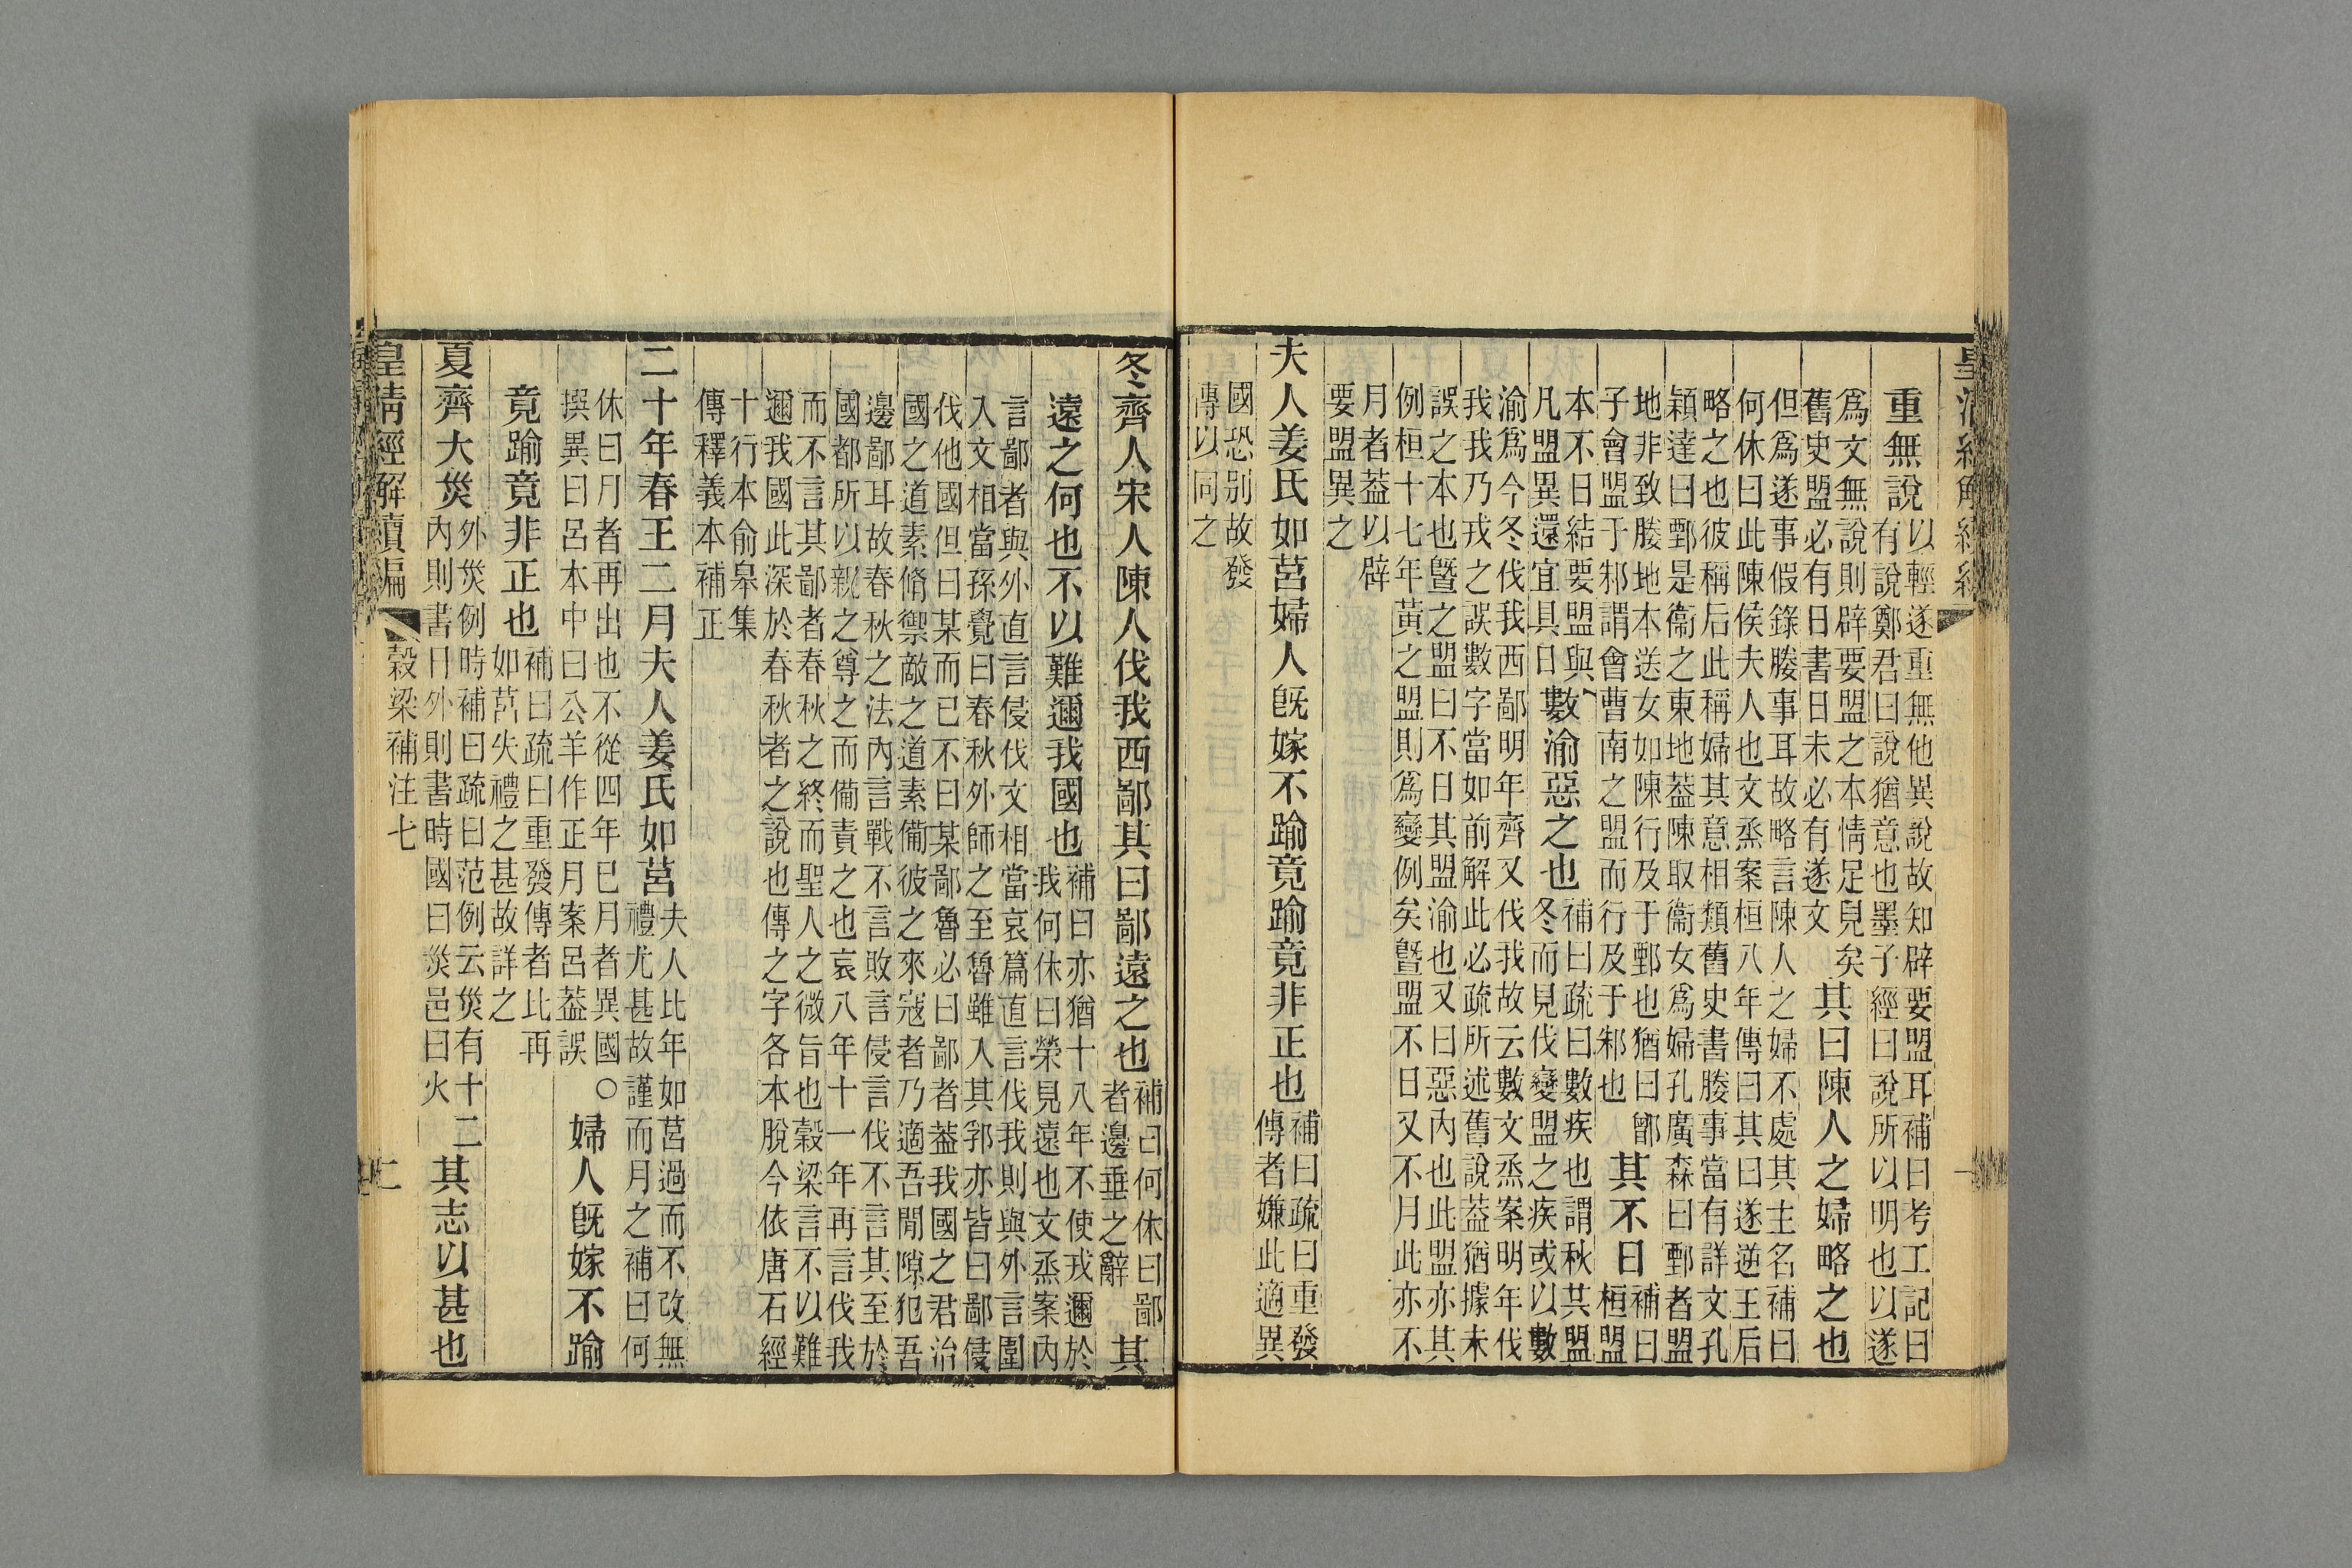 重無說以輕遂重無他異說故知辟要盟耳補曰考工記曰
有說鄭君曰說猶意也墨子經曰說所以明也以遂
爲文無說則辟要盟之本情足見矣其曰陳人之婦略之也
舊史盟必有日書日未必有遂文
但爲遂事假錄媵事耳故略言陳人之婦不處其主名補曰
何休曰此陳侯夫人也文烝案桓八年傳曰其曰遂逆王后
略之也彼稱后此稱婦其意相類舊史書媵事當有詳文孔
穎達曰鄄是衞之東地葢陳取衞女爲婦孔廣森曰鄄者盟
地非致媵地本送女如陳行及于鄄也猶曰鄫
子會盟于邾謂會曹南之盟而行及于邾也其不日補曰
桓盟
本不日結要盟與
凡盟異還宜具日數渝惡之也補曰疏曰數疾也謂秋共盟
冬而見伐變盟之疾或以數
渝爲今冬伐我西鄙明年齊又伐我故云數文烝案明年伐
我我乃戎之誤數字當如前解此必疏所述舊說葢猶據未
誤之本也曁之盟曰不日其盟渝也又曰惡內也此盟亦其
例桓十七年黃之盟則爲變例矣曁盟不日又不月此亦不
月者葢以辟
要盟異之
夫人姜氏如莒婦人旣嫁不踰竟踰竟非正也補曰疏曰重發
傳者嫌此適異
國恐別故發
傳以同之
冬齊人宋人陳人伐我西鄙其曰鄙遠之也補曰何休曰鄙
者邊垂之辭其
遠之何也不以難邇我國也補曰亦猶十八年不使戎邇於
我何休曰榮見遠也文烝案內
言鄙者與外直言侵伐文相當哀篇直言伐我則與外言圍
入文相當孫覺曰春秋外師之至魯雖入其郛亦皆曰鄙侵
伐他國但曰某而已不曰某鄙魯必曰鄙者葢我國之君治
國之道素脩禦敵之道素備彼之來寇者乃適吾閒隙犯吾
邊鄙耳故春秋之法內言戰不言敗言侵言伐不言其至於
國都所以親之尊之而備責之也哀八年十一年再言伐我
而不言其鄙者春秋之終而聖人之微旨也穀梁言不以難
邇我國此深於春秋者之說也傳之字各本脫今依唐石經
十行本俞皋集
傳釋義本補正
二十年春王二月夫人姜氏如莒夫人比年如莒過而不改無
禮尤甚故謹而月之補曰何
休曰月者再出也不從四年已月者異國○婦人旣嫁不踰
撰異曰呂本中曰公羊作正月案呂葢誤
竟踰竟非正也補曰疏曰重發傳者比再
如莒失禮之甚故詳之
夏齊大災外災例時補曰疏曰范例云災有十二
內則書日外則書時國曰災邑曰火其志以甚也
皇清經解續編 穀梁補注七 二